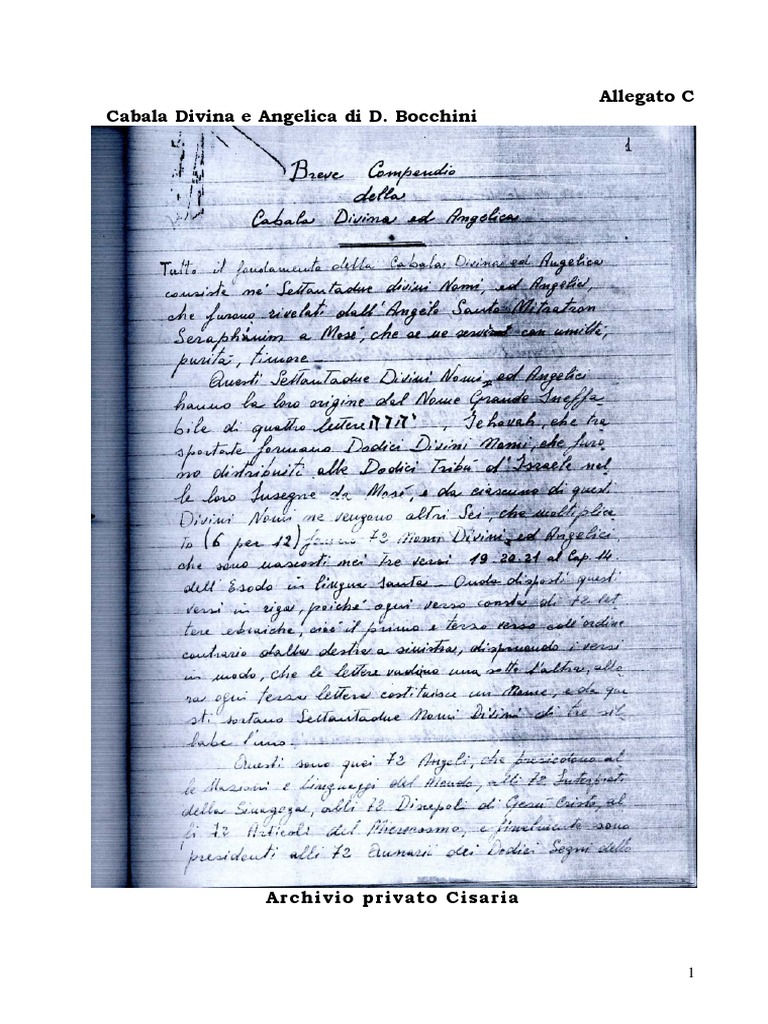 Allegato C
Cabala Divina e Angelica di D. Bocchini
1
Breve Compendio
della
Cabala Divina ed Angelica
Tutto il fondamento della Cabala Divina ed Angelica
consiste ne' Settantadue divini Nomi, ed Angelici,
che furono rivelati dall'Angelo Santo Mitratron
Seraphinim a Mosé, che se ne servì con umiltà,
purità, timore.
Questi Settantadue Divini Nomi, ed Angelici
hanno la loro origine dal Nome Grande Ineffa-
bile di quattro lettere יהוה, Jehovah, che tra
sportate formano Dodici Divini Nomi, che furo
no distribuiti alle Dodici Tribù d'Israele nel
le loro Insegne da Mosé, e da ciascuno di questi
Divini Nomi ne vengono altri Sei, che moltiplica
to (6 per 12) fanno 72 Nomi Divini, ed Angelici,
che sono nascosti nei tre versi 19.20.21 al Cap. 14.
dell'Esodo in lingua Santa - Onde disposti questi
versi in riga, poiché ogni verso consta di 72 let
tere ebraiche, cioé il primo e terzo verso coll'ordine
contrario dalla destra a sinistra, disponendo i versi
in modo, che le lettere vadino una sotto l'altra, allo
ra ogni terza lettera costituisce un Nome, e da que
sti sortano Settantadue Nomi Divini di tre sil-
labe l'uno.
Questi sono quei 72 Angeli, che presiedono al
le Nazioni e Linguaggi del Mondo, alli 72 Interpreti
della Sinagoga, alli 72 Discepoli di Gesù Cristo, al
li 72 Articoli del Microcosmo, e finalmente sono
presidenti alli 72 Qunarii dei Dodici Segni dello
Archivio privato Cisaria
1